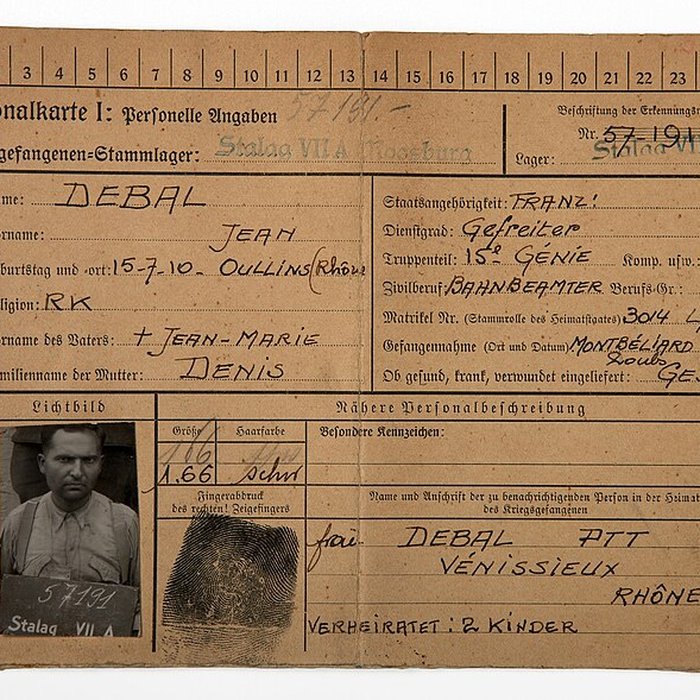 3 4 5 6 7 8 9 10 11 12 13 14 15 16 17 18 19 20 21 22 23
onalkarte I: Personelle Angaben 57191.-
gefangenen=Stammlager: Stalag VII A Moosburg
Beschriftung der Erkennungs
Nr. 57191
Lager: Stalag VII
me: DEBAL
rname: JEAN
burtstag und =ort: 15-7-10- OULLINS (Rhône
ligion: RK
rname des Vaters: + JEAN-MARIE
milienname der Mutter: DENIS
Staatsangehörigkeit: FRANZ!
Dienstgrad: Gefreiter
Truppenteil: 15e GÉNIE Komp. usw.:
Zivilberuf: BAHNBEAMTER Berufs-Gr.:
Matrikel Nr. (Stammrolle des Heimatstaates) 3014 L
Gefangennahme (Ort und Datum) MONTBÉLIARD
Doubs
Ob gesund, krank, verwundet eingeliefert: GES
Lichtbild
Nähere Personalbeschreibung
Größe Haarfarbe
1.66 schw
Besondere Kennzeichen:
Fingerabdruck
des rechten! Zeigefingers
Name und Anschrift der zu benachrichtigenden Person in der Heimat
des Kriegsgefangenen
DEBAL PTT
VÉNISSIEUX
RHÔNE
VERHEIRATET: 2 KINDER
57191
Stalag VII A